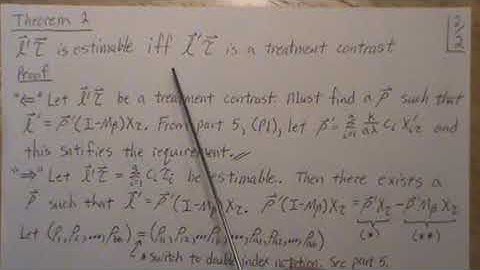 Theorem 2
2/2
l⃗'τ⃗ is estimable iff l⃗'τ⃗ is a treatment contrast
Proof
"⇐" Let l⃗'τ⃗ be a treatment contrast. Must find a ρ⃗ such that
l⃗' = ρ⃗'(I-Mβ)Xτ. From part 5, (P1), let ρ⃗' = Σ k/aλ Ci Xi'τ and
this satifies the requirement.
"⇒" Let l⃗'τ⃗ = Σ Ciτi be estimable. Then there exists a
ρ⃗ such that l⃗' = ρ⃗'(I-Mβ)Xτ. ρ⃗'(I-Mβ)Xτ = ρ⃗'Xτ - ρ⃗'MβXτ
(*) (**)
Let (ρ1, ρ2, ..., ) = (ρ11, ρ12, ..., )
* switch to double index notation. See part 5.